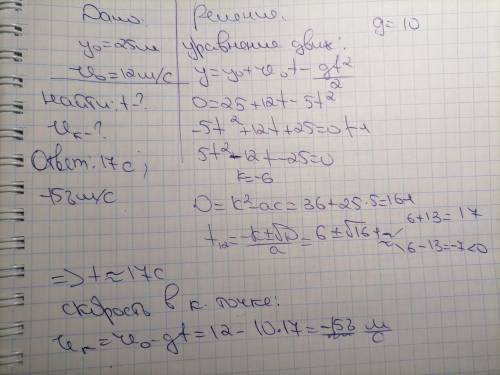 Дано:
y₀=25м
v₀=12м/с
Найти: t-?
vₖ-?
Ответ: 17с;
-158м/с
Решение.
g=10
уравнение движ:
y=y₀+v₀t-gt²/2
0=25+12t-5t²
-5t²+12t+25=0
5t²-12t-25=0
k=-6
D=k²-ac=36+25·5=161
t₁,₂=(-k±√D)/a=6±√161≈
6+13=17
6-13=-7<0
=>t≈17с
скорость в к. точке:
vₖ=v₀-gt=12-10·17=-158 м/с